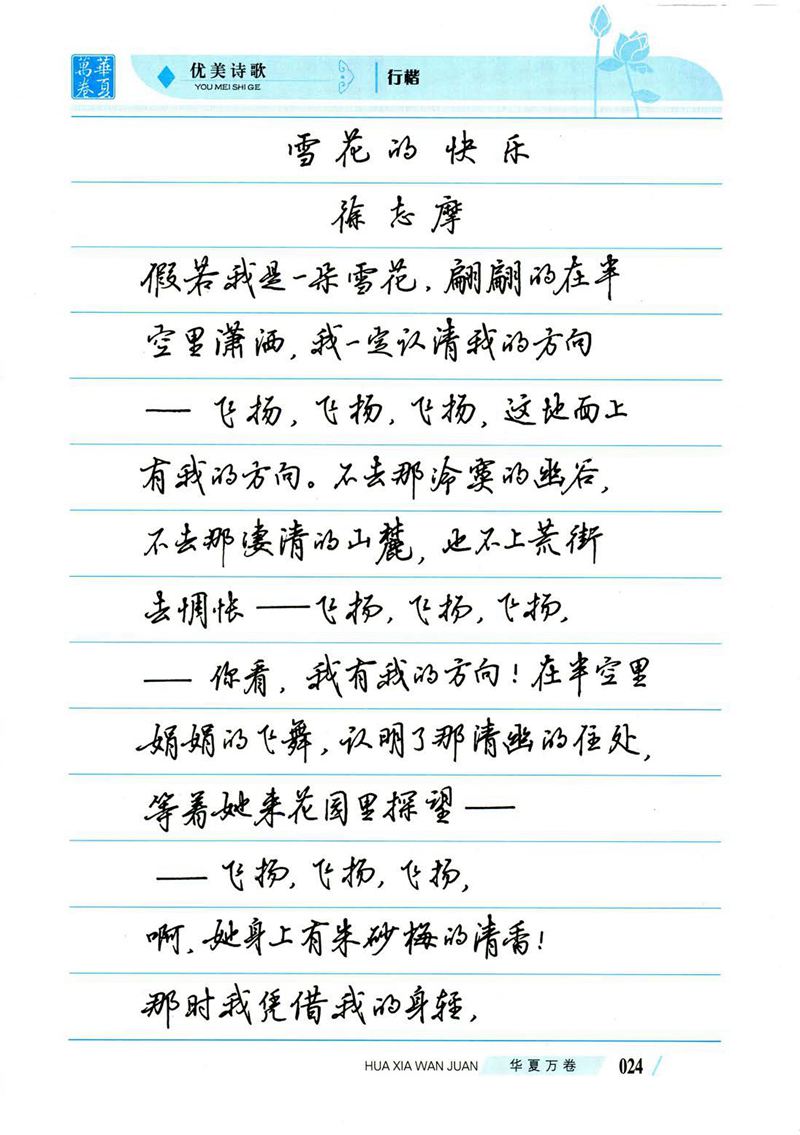 華夏
萬卷
优美诗歌
YOU MEI SHI GE
行楷
雪花的快乐
徐志摩
假若我是一朵雪花，翩翩的在半
空里潇洒，我一定认清我的方向
—— 飞扬，飞扬，飞扬，这地面上
有我的方向。不去那冷寞的幽谷，
不去那凄清的山麓，也不上荒街
去惆怅——飞扬，飞扬，飞扬，
—— 你看，我有我的方向！在半空里
娟娟的飞舞，认明了那清幽的住处，
等着她来花园里探望——
—— 飞扬，飞扬，飞扬，
啊，她身上有朱砂梅的清香！
那时我凭借我的身轻，
HUA XIA WAN JUAN
华夏万卷
024